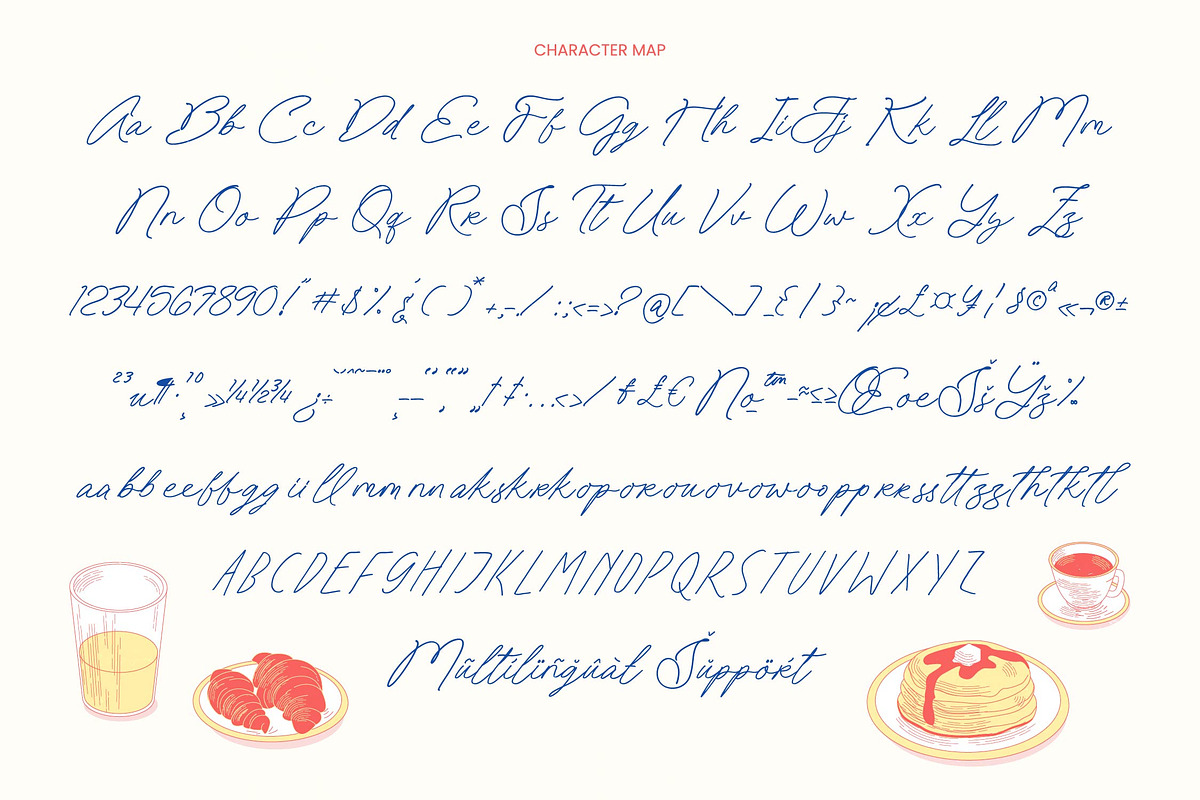 CHARACTER MAP
Aa Bb Cc Dd Ee Ff Gg Hh Ii Jj Kk Ll Mm
Nn Oo Pp Qq Rr Ss Tt Uu Vv Ww Xx Yy Zz
1234567890!" #$%&'()*+,-./:;<=>?@[\]_{|}~¡¢£¤¥¦§©ª«¬®±
²³µ¶·¸¹º»¼½¾¿÷ – — ‚ „ † ‡ • … ‹ › ⁄ ₤ € No ™ − ≈ ≤ ≥ Œ œ Šš Ÿ ž ‰
aa bb ee ff gg ii ll mm nn ak sk rk ko op or ou ov ow oo pp rr ss tt zz th tk tl
ABCDEFGHIJKLMNOPQRSTUVWXYZ
Mũltílïñğûàł Šŭppöŕt